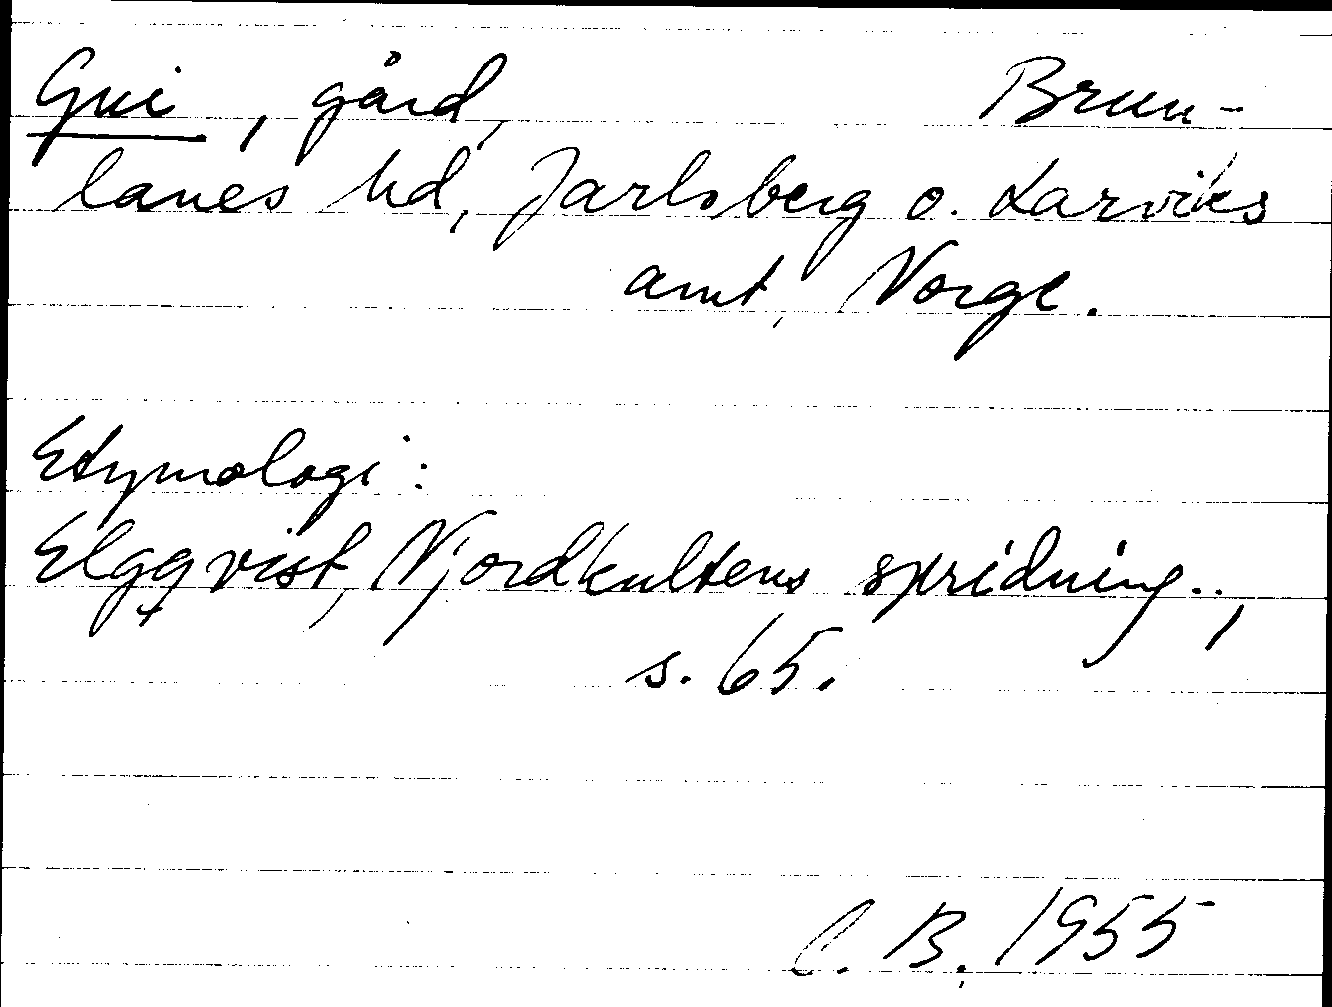 Gui, gård, Brun-
lanes hd, Jarlsberg o. Larviks
amt, Norge.
Etymologi:
Elgqvist, Njordkultens spridning..,
s. 65.
C. B. 1955